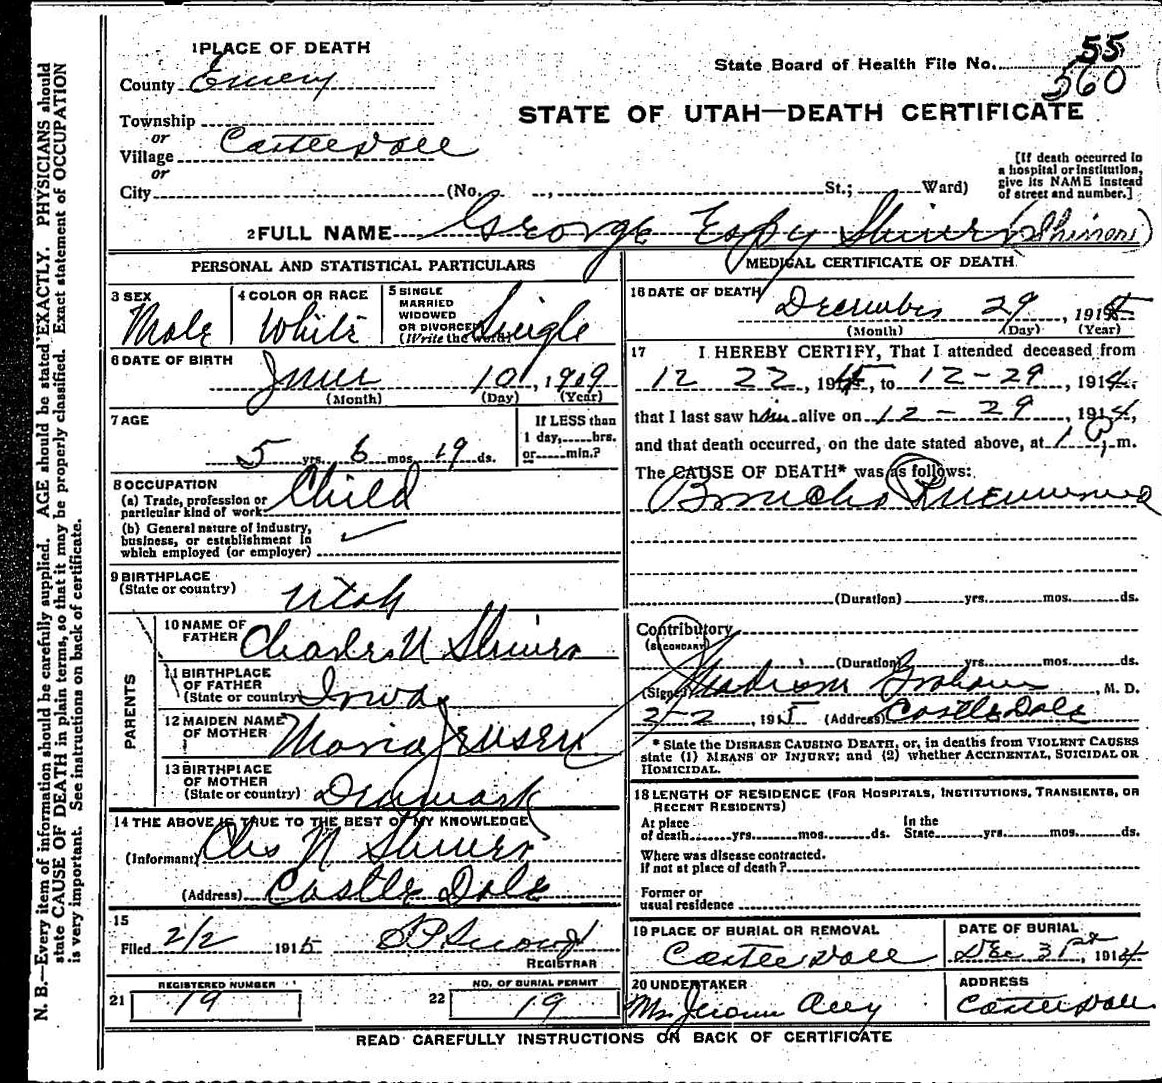 1 PLACE OF DEATH
County Emery
State Board of Health File No. 55
560
STATE OF UTAH—DEATH CERTIFICATE
Township
or
Village Castle Dale
or
City (No. , St.; Ward)
[If death occurred in a hospital or institution, give its NAME instead of street and number.]
2 FULL NAME George Espy (Shiner)
PERSONAL AND STATISTICAL PARTICULARS
3 SEX Male
4 COLOR OR RACE White
5 SINGLE MARRIED WIDOWED OR DIVORCED (Write the word) Single
6 DATE OF BIRTH
June 10, 1909
(Month) (Day) (Year)
7 AGE
5 yrs. 6 mos. 19 ds.
If LESS than 1 day, hrs. or min.?
8 OCCUPATION
(a) Trade, profession or particular kind of work Child
(b) General nature of industry, business, or establishment in which employed (or employer)
9 BIRTHPLACE
(State or country) Utah
PARENTS
10 NAME OF FATHER Charles N
11 BIRTHPLACE OF FATHER (State or country) Iowa
12 MAIDEN NAME OF MOTHER Maria Jensen
13 BIRTHPLACE OF MOTHER (State or country) Denmark
14 THE ABOVE IS TRUE TO THE BEST OF MY KNOWLEDGE
(Informant) Chs N
(Address) Castle Dale
15
Filed 2/2 1915
REGISTRAR
21 REGISTERED NUMBER 19
22 NO. OF BURIAL PERMIT 19
MEDICAL CERTIFICATE OF DEATH
16 DATE OF DEATH
December 29, 191
(Month) (Day) (Year)
17 I HEREBY CERTIFY, That I attended deceased from
12 22, 191 , to 12-29, 1914.
that I last saw him alive on 12-29, 1914,
and that death occurred, on the date stated above, at 1 m.
The CAUSE OF DEATH* was as follows:
Broncho Pneumonia
(Duration) yrs. mos. ds.
Contributory
(SECONDARY)
(Duration) yrs. mos. ds.
(Signed) Graham, M. D.
2-2, 1915 (Address) Castle Dale
* State the DISEASE CAUSING DEATH, or, in deaths from VIOLENT CAUSES
state (1) MEANS OF INJURY; and (2) whether ACCIDENTAL, SUICIDAL OR
HOMICIDAL.
18 LENGTH OF RESIDENCE (FOR HOSPITALS, INSTITUTIONS, TRANSIENTS, OR
RECENT RESIDENTS)
At place of death yrs. mos. ds. In the State yrs. mos. ds.
Where was disease contracted.
If not at place of death?
Former or
usual residence
19 PLACE OF BURIAL OR REMOVAL
Castle Dale
DATE OF BURIAL
Dec 31st, 1914
20 UNDERTAKER
ADDRESS
Castle Dale
READ CAREFULLY INSTRUCTIONS ON BACK OF CERTIFICATE
N. B.—Every item of information should be carefully supplied. AGE should be stated EXACTLY. PHYSICIANS should
state CAUSE OF DEATH in plain terms, so that it may be properly classified. Exact statement of OCCUPATION
is very important. See instructions on back of certificate.